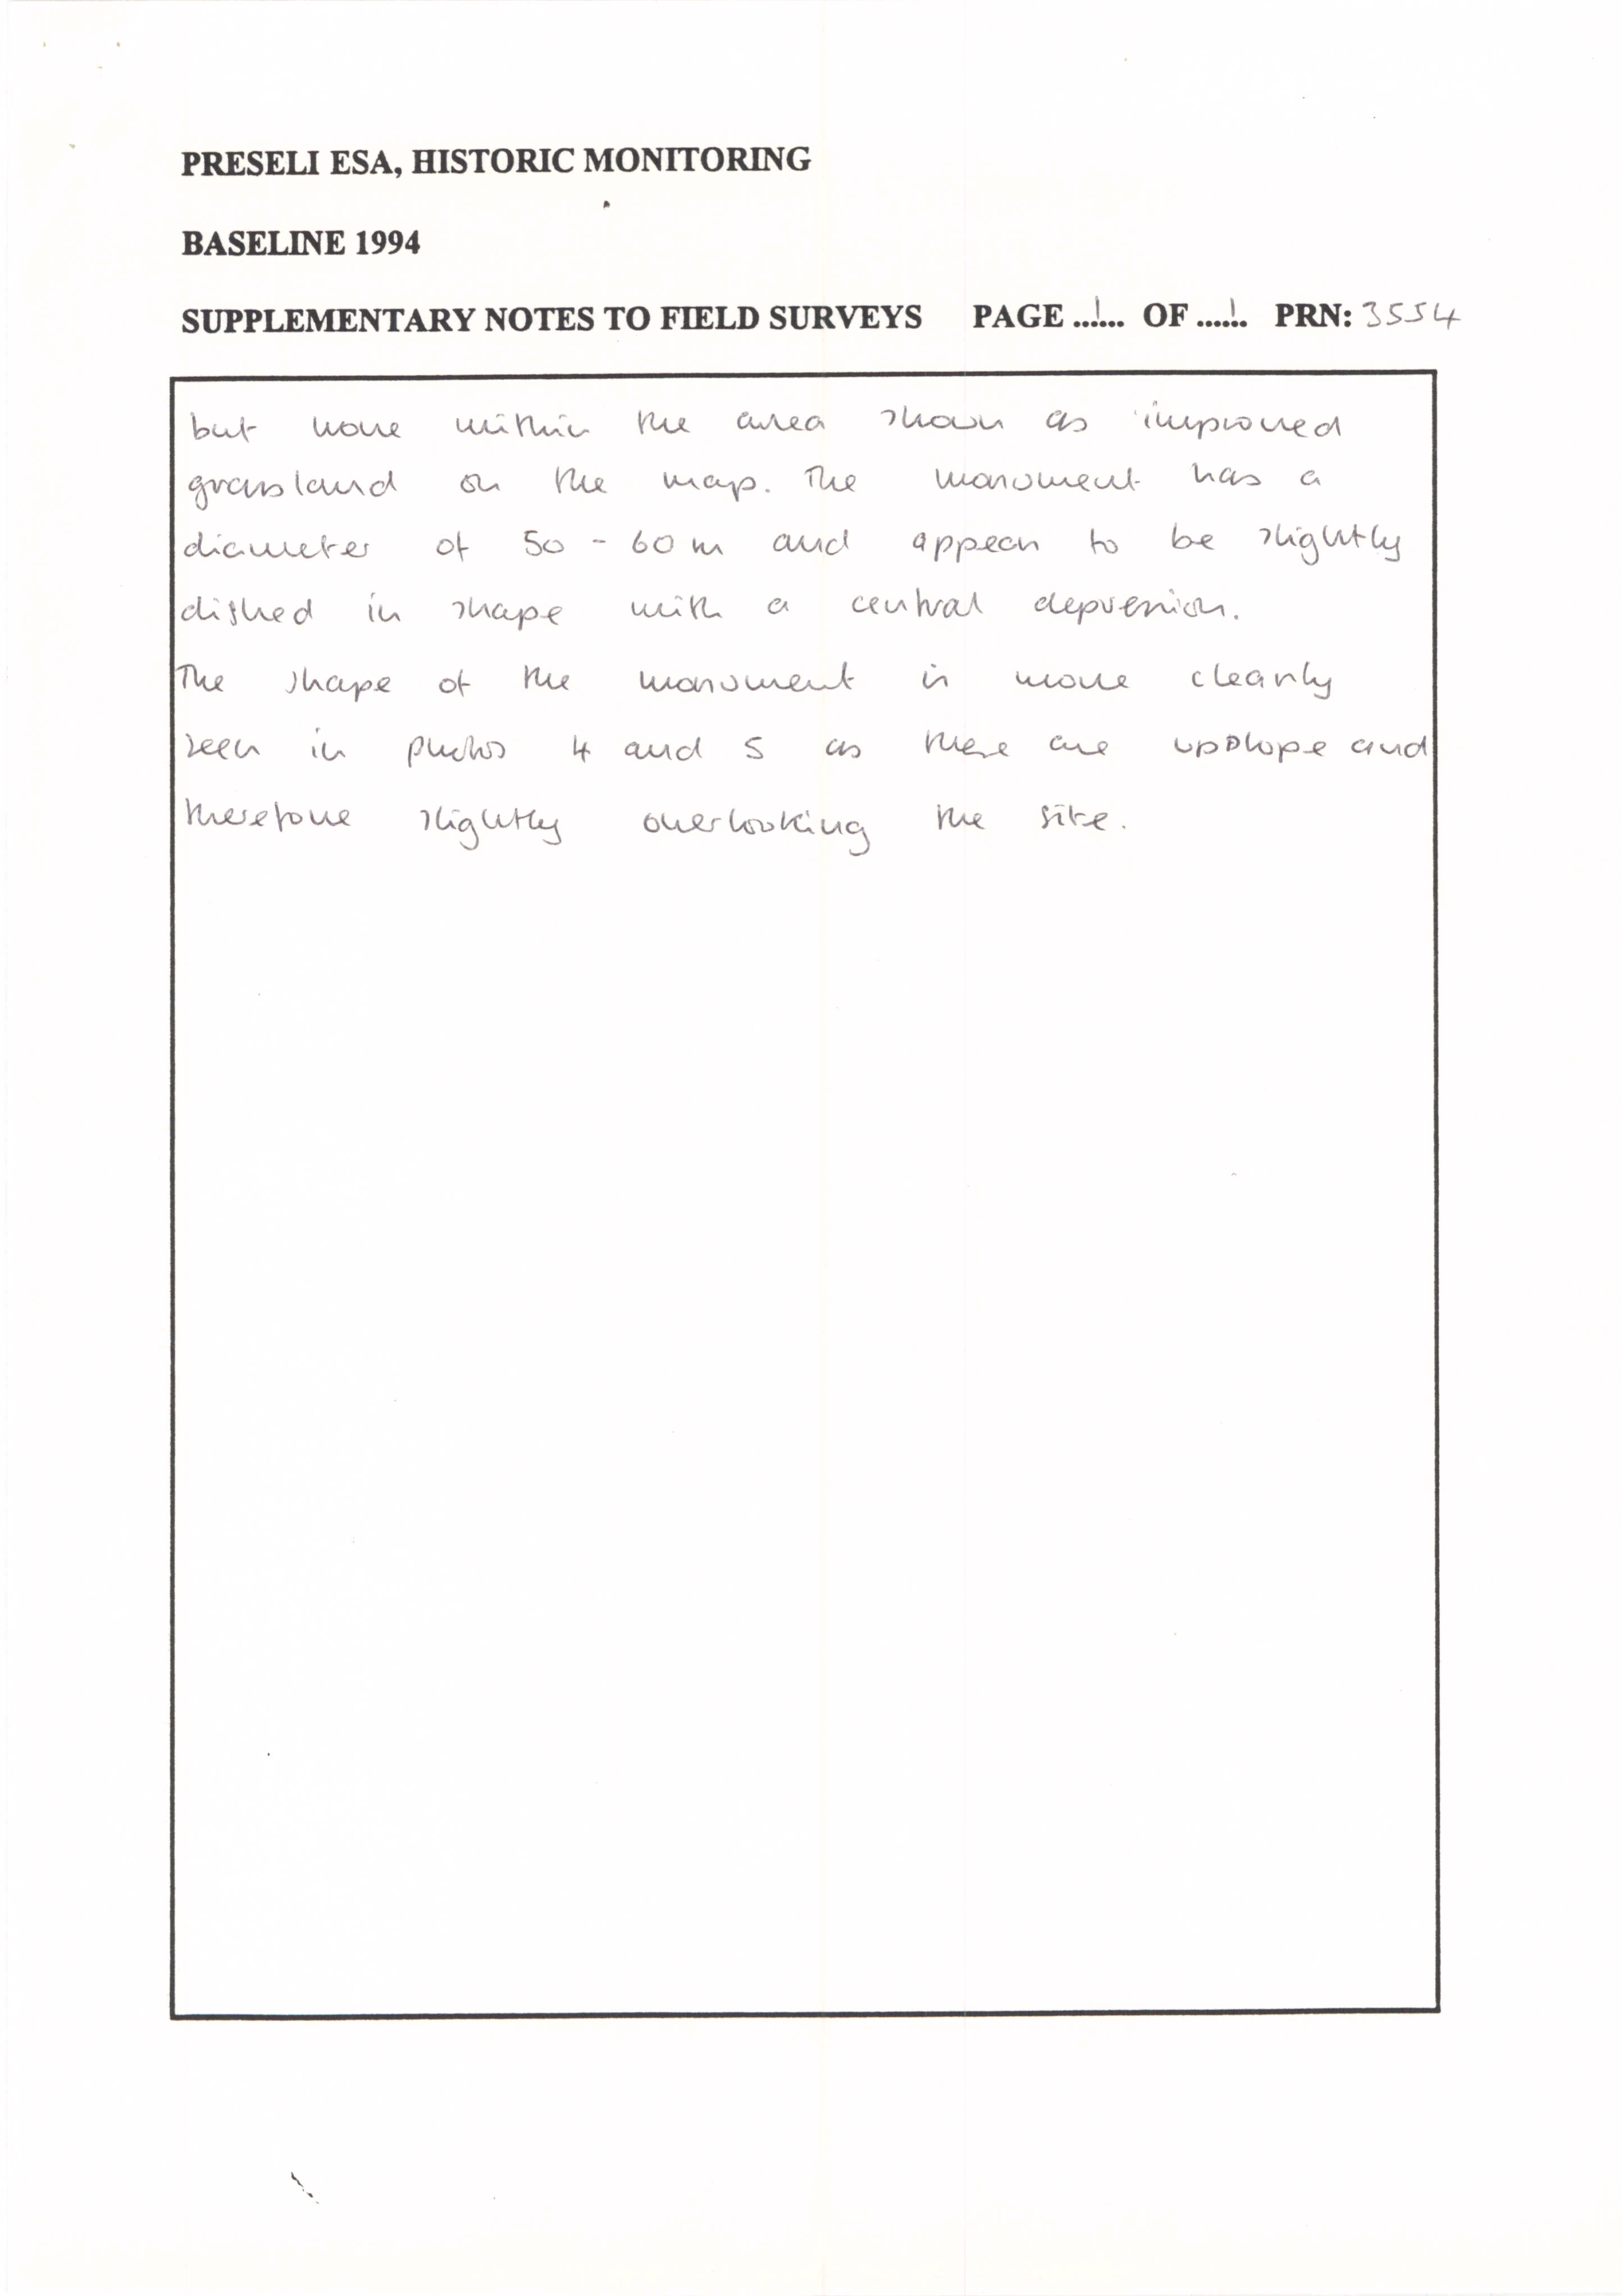 PRESELI ESA, HISTORIC MONITORING
BASELINE 1994
SUPPLEMENTARY NOTES TO FIELD SURVEYS PAGE ..1... OF ......1. PRN: 3554
but none within the area shown as improved
grassland on the map. The monument has a
diameter of 50 - 60m and appears to be slightly
dished in shape with a central depression.
The shape of the monument is more clearly
seen in photos 4 and 5 as these are upslope and
therefore slightly overlooking the site.